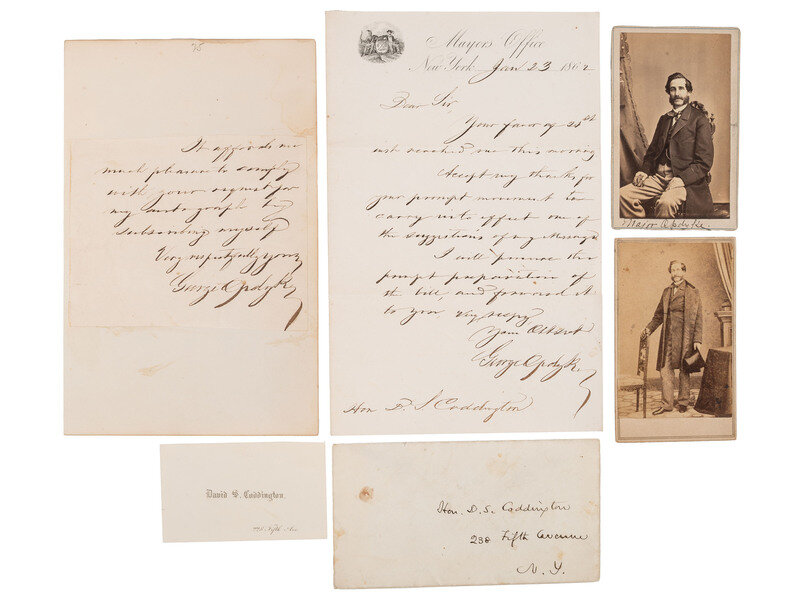 It affords me
much pleasure to comply
with your request for
my autograph by
subscribing myself
Very respectfully yours
George Opdyke
Mayor's Office
New York, Jan 23 1862
Dear Sir
Your favor of 21st
just reached me this morning
Accept my thanks for
your prompt movement to
carry into effect one of
the suggestions of my Message
I will procure the
prompt preparation of
the bill, and forward it
to you Very respy
Your Obt Svt
George Opdyke
Hon D. S. Coddington
Mayor Opdyke.
David S. Coddington.
Fifth Ave
Hon. D. S. Coddington
Fifth Avenue
N. Y.